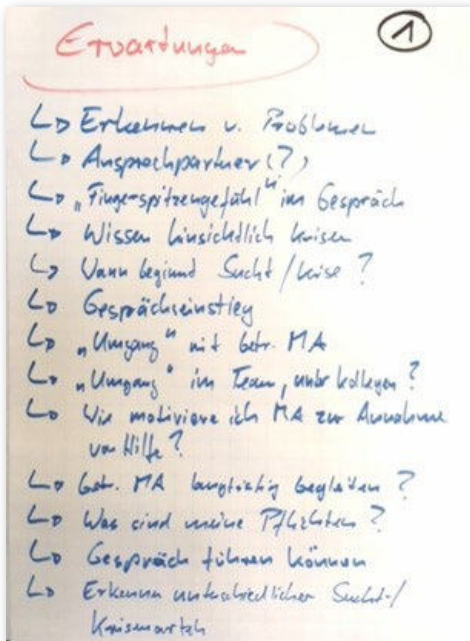 Erwartungen
1
↳ Erkennen v. Problemen
↳ Ansprechpartner (?)
↳ „Fingerspitzengefühl" im Gespräch
↳ Wissen hinsichtlich Krisen
↳ Wann beginnt Sucht/Krise?
↳ Gesprächseinstieg
↳ „Umgang" mit betr. MA
↳ „Umgang" im Team, unter Kollegen?
↳ Wie motiviere ich MA zur Annahme
von Hilfe?
↳ betr. MA langfristig begleiten?
↳ Was sind meine Pflichten?
↳ Gespräch führen können
↳ Erkennen unterschiedlicher Sucht-/
Krisenarten